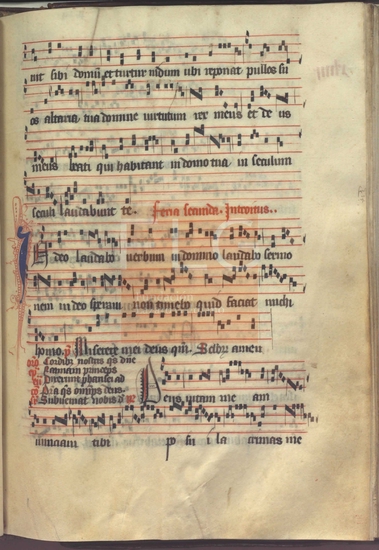 nit sibi domū et turtur nidum ubi reponat pullos su
os altaria tua domine virtutum rex meus et de us
meus beati qui habitant in domo tua in seculum
seculi laudabunt te. Feria secunda. Introitus.
In deo laudabo verbum in domino laudabo sermo
nem in deo speravi non timebo quid faciat michi
homo. p̄ Miserere mei deus qm̄. Seculor amen
Cordibus nostris qs dne
Naaman princeps
Dixerunt pharisei ad
Subveniat nobis dne
Deus vitam me am
nunciavi tibi po su i la crimas me